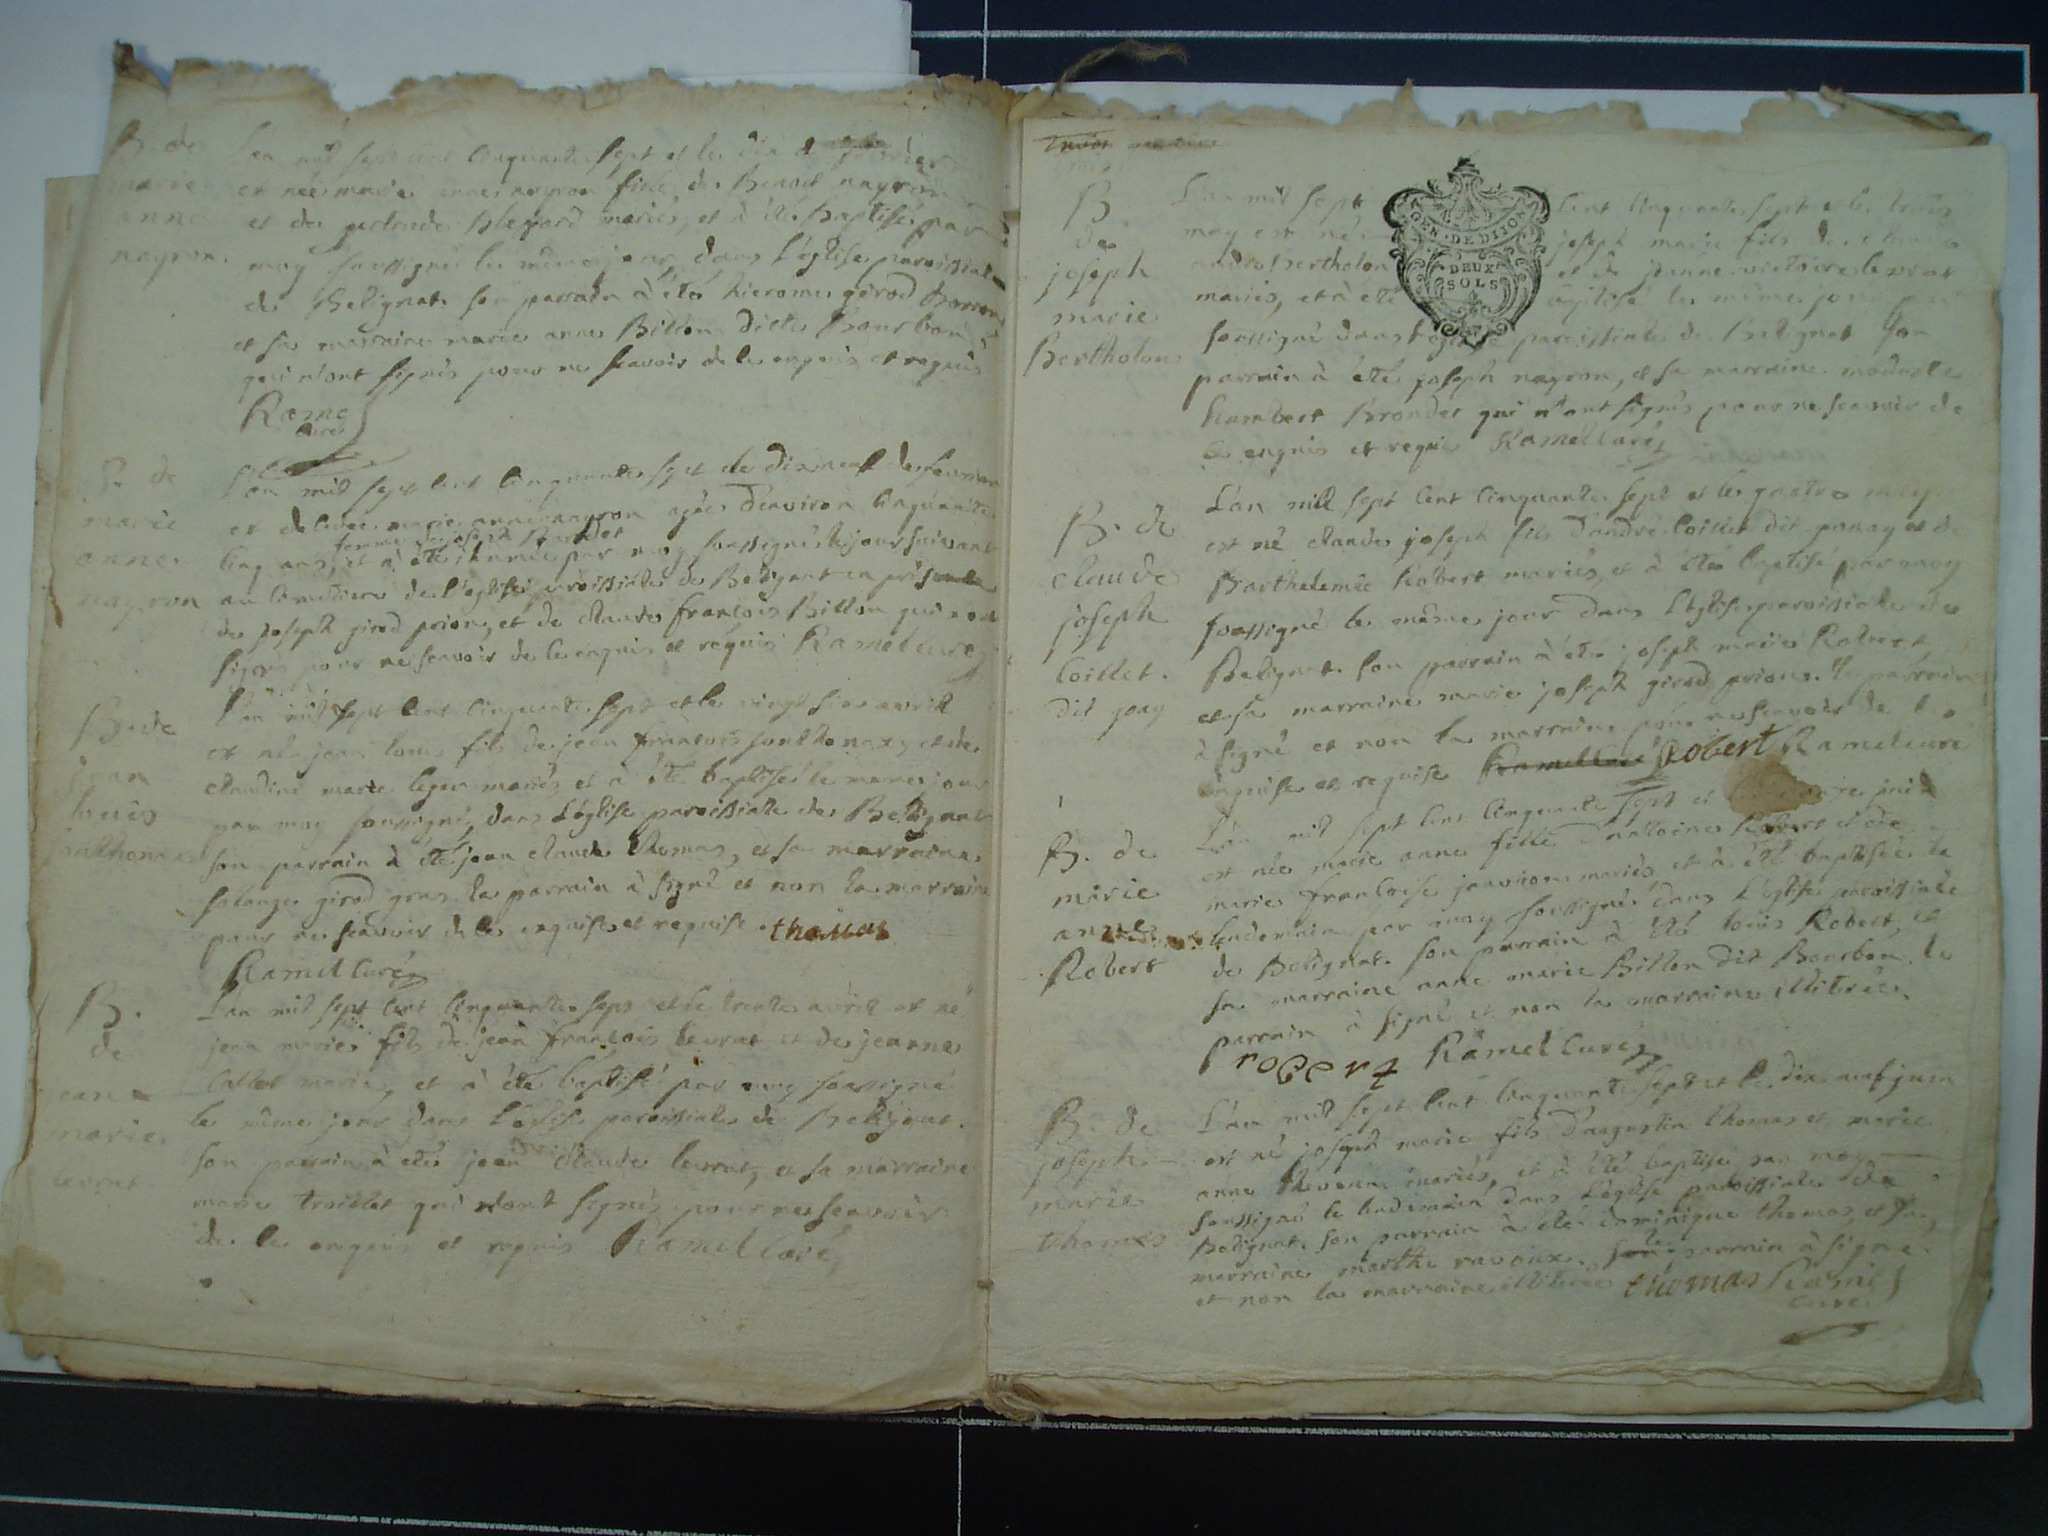 B. de
marie
anne
nayron
L'an mil sept cent cinquante sept et le dix de fevrier
est née marie anne nayron fille de Benoit nayron
et de pertonde blegard mariés, et à été Baptisée par
moy soussigné le même jour dans L'eglise paroissiale
de Belignat son parrain à été hierome girod
et sa marraine marie anne Billon ditte Bourbon
qui n'ont signés pour ne scavoir de ce enquis et requis
Ramel
curé
de
marie
anne
nayron
L'an mil sept cent cinquante sept et le dixneuf de fevrier
est decedee marie anne nayron agée d'environ cinquante
femme de joseph
cinq ans, et à été inhumée par moy soussigné le jour suivant
au cimetiere de l'eglise paroissiale de Belignat en présence
de joseph girod prion, et de claude françois Billon qui n'ont
signés pour ne scavoir de ce enquis et requis Ramel curé
B. de
jean
louis
L'an mil sept cent cinquante sept et le vingt avril
est né jean louis fils de jean françois et de
claudine marie leger mariés et à été baptisé le meme jour
par moy soussigné, dans L'église paroissiale de Belignat
son parrain à été jean claude Thomas, et sa marraine
solange girod gras le parrain à signé et non la marraine
pour ne scavoir de ce enquise et requise. thomas
Ramel curé
B.
de
jean
marie
levrat
L'an mil sept cent cinquante sept et le trente avril est né
jean marie fils de jean françois levrat et de jeanne
collet mariés, et à été baptisé par moy soussigné
le même jour dans L'église paroissiale de Belignat.
son parrain à été jean claude levrat, et sa marraine
marie troillet qui n'ont signés pour ne scavoir
de ce enquis et requis Ramel curé
GEN. DE DIJON
DEUX
SOLS
B
de
joseph
marie
Bertholon
L'an mil sept cent cinquante sept et le trois
may est né joseph marie fils de claude
andre Bertholon et de jeanne victoire levrat
mariés, et à été baptisé le même jour par
soussigné dans l'eglise paroissiale de Belignat son
parrain à été joseph nayron, et sa marraine modeste
humbert Brondet qui n'ont signés pour ne scavoir de
ce enquis et requis Ramel curé
B. de
claude
joseph
Coillet.
dit pony
L'an mill sept cent cinquante sept et le quatre may
est né claude joseph fils d'andre Coillet dit pony et de
Barthelemie Robert mariés, et à été baptisé par moy
soussigné le même jour dans L'eglise paroissiale de
Belignat son parrain à été joseph marie Robert,
et sa marraine marie joseph girod prion. le parrain
à signé et non la marraine pour ne scavoir de ce
enquise et requise Ramel curé Robert Ramel curé
B. de
marie
anne
Robert
L'an mil sept cent cinquante sept et juin
est née marie anne fille d'antoine Robert et de
marie françoise janvion mariés et à été baptisée le
lendemain par moy soussigné dans L'eglise paroissiale
de Belignat. son parrain à été louis Robert, et
sa marraine anne marie Billon dit Bourbon. le
parrain à signé et non la marraine illitrée.
robert Ramel curé
B. de
joseph
marie
thomas
L'an mil sept cent cinquante sept et le dix neuf juin
est né joseph marie fils d'augustin thomas et marie
anne mariés, et à été baptisé par moy
soussigné le lendemain dans L'eglise paroissiale de
Belignat. son parrain à été dominique thomas, et sa
marraine marthe ravoux. le parrain à signé
et non la marraine illitrée thomas Ramel
curé